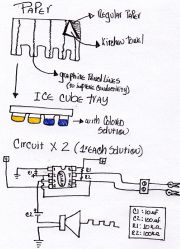 PAPER
Regular Paper
Kitchen Towel
graphite Pencil Lines
(to improve conductivity)
ICE CUBE TRAY
with Colored
Solution
Circuit X 2 (1 each solution)
C1
R1
R2
C2
C1: 10nf
C2: 100nf
R1: 10kΩ
R2: 100kΩ